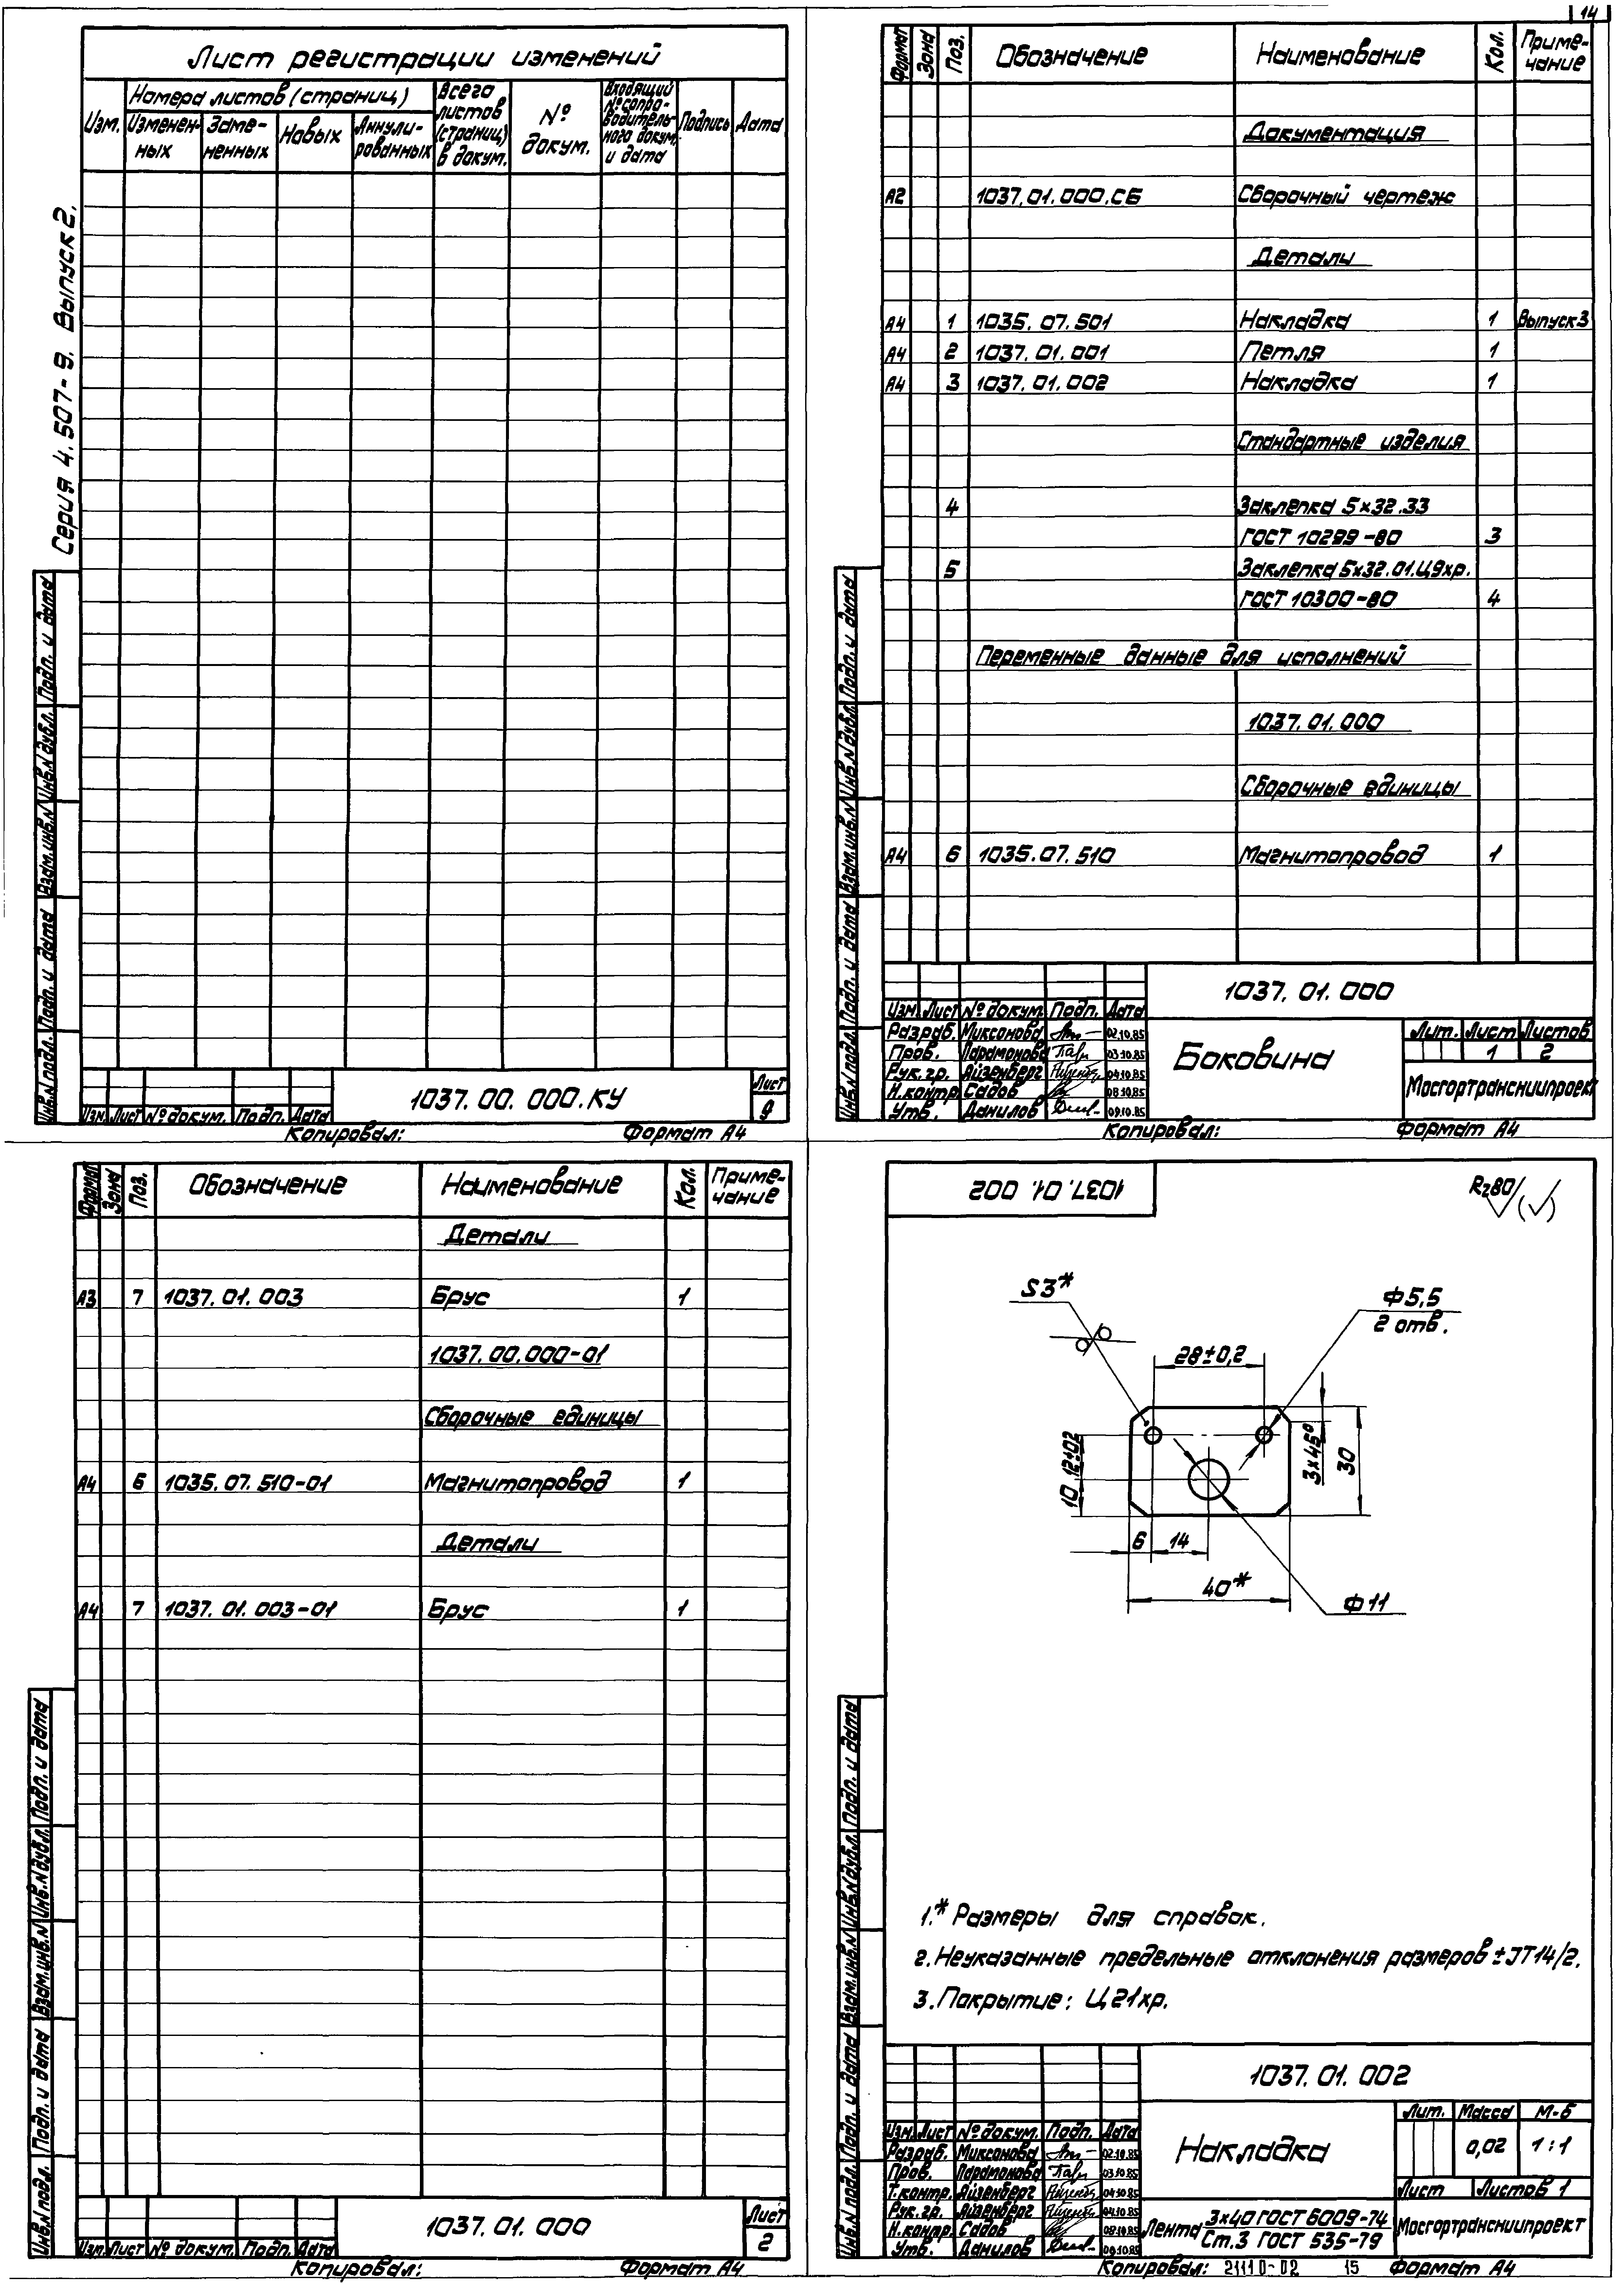 14
Серия 4.507-9. Выпуск 2.
Лист регистрации изменений
Изм. Номера листов (страниц) Всего листов (страниц) в докум. № докум. Входящий № сопроводительного докум. и дата Подпись Дата
Измененных Замененных Новых Аннулированных
Инв.N подл. Подп. и дата Взам.инв.N Инв.N дубл. Подп. и дата
1037.00.000.КУ
Лист
9
Изм. Лист № докум. Подп. Дата
Копировал: Формат А4
Формат Зона Поз. Обозначение Наименование Кол. Примечание
Документация
А2 1037.01.000.СБ Сборочный чертеж
Детали
А4 1 1035.07.501 Накладка 1 Выпуск 3
А4 2 1037.01.001 Петля 1
А4 3 1037.01.002 Накладка 1
Стандартные изделия
4 Заклепка 5×32.33
ГОСТ 10299-80 3
5 Заклепка 5×32.01.Ц9хр.
ГОСТ 10300-80 4
Переменные данные для исполнений
1037.01.000
Сборочные единицы
А4 6 1035.07.510 Магнитопровод 1
Инв.N подл. Подп. и дата Взам.инв.N Инв.N дубл. Подп. и дата
1037.01.000
Изм. Лист № докум. Подп. Дата
Разраб. Миксонова 02.10.85
Пров. Парамонова 03.10.85
Рук.гр. Айзенберг 04.10.85
Н.контр. Садов 08.10.85
Утв. Данилов 09.10.85
Боковина
Лит. Лист Листов
1 2
Мосгортрансниипроект
Копировал: Формат А4
Формат Зона Поз. Обозначение Наименование Кол. Примечание
Детали
А3 7 1037.01.003 Брус 1
1037.00.000-01
Сборочные единицы
А4 6 1035.07.510-01 Магнитопровод 1
Детали
А4 7 1037.01.003-01 Брус 1
Инв.N подл. Подп. и дата Взам.инв.N Инв.N дубл. Подп. и дата
1037.01.000
Лист
2
Изм. Лист № докум. Подп. Дата
Копировал: Формат А4
1037.01.002
Rz80 (√)
S3*
Ф5,5
2 отв.
28±0,2
12±0,2
10
3×45°
30
6 14
40*
Ф11
1.* Размеры для справок.
2. Неуказанные предельные отклонения размеров ±JT14/2.
3. Покрытие: Ц21хр.
Инв.N подл. Подп. и дата Взам.инв.N Инв.N дубл. Подп. и дата
1037.01.002
Изм. Лист № докум. Подп. Дата
Разраб. Миксонова 02.10.85
Пров. Парамонова 03.10.85
Т.контр. Айзенберг 04.10.85
Рук.гр. Айзенберг 04.10.85
Н.контр. Садов 08.10.85
Утв. Данилов 09.10.85
Накладка
Лит. Масса М-б
0,02 1:1
Лист Листов 1
Лента 3×40 ГОСТ 6009-74
Ст.3 ГОСТ 535-79
Мосгортрансниипроект
Копировал: 21110-02 15 Формат А4